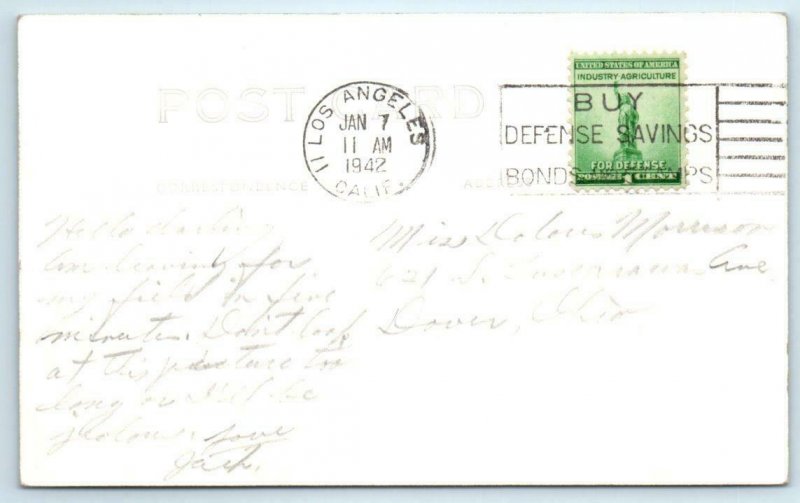 POST CARD
CORRESPONDENCE
LOS ANGELES
JAN 7
11 AM
1942
CALIF.
11
BUY
DEFENSE SAVINGS
BONDS
UNITED STATES OF AMERICA
INDUSTRY AGRICULTURE
FOR DEFENSE
POSTAGE 1 CENT
Hello darling
Am leaving for
my field in five
minutes. Don't look
at this picture too
long or I'll be
jealous. Love
Jack.
Miss Morrison
621 S. Ave
Dover, Ohio